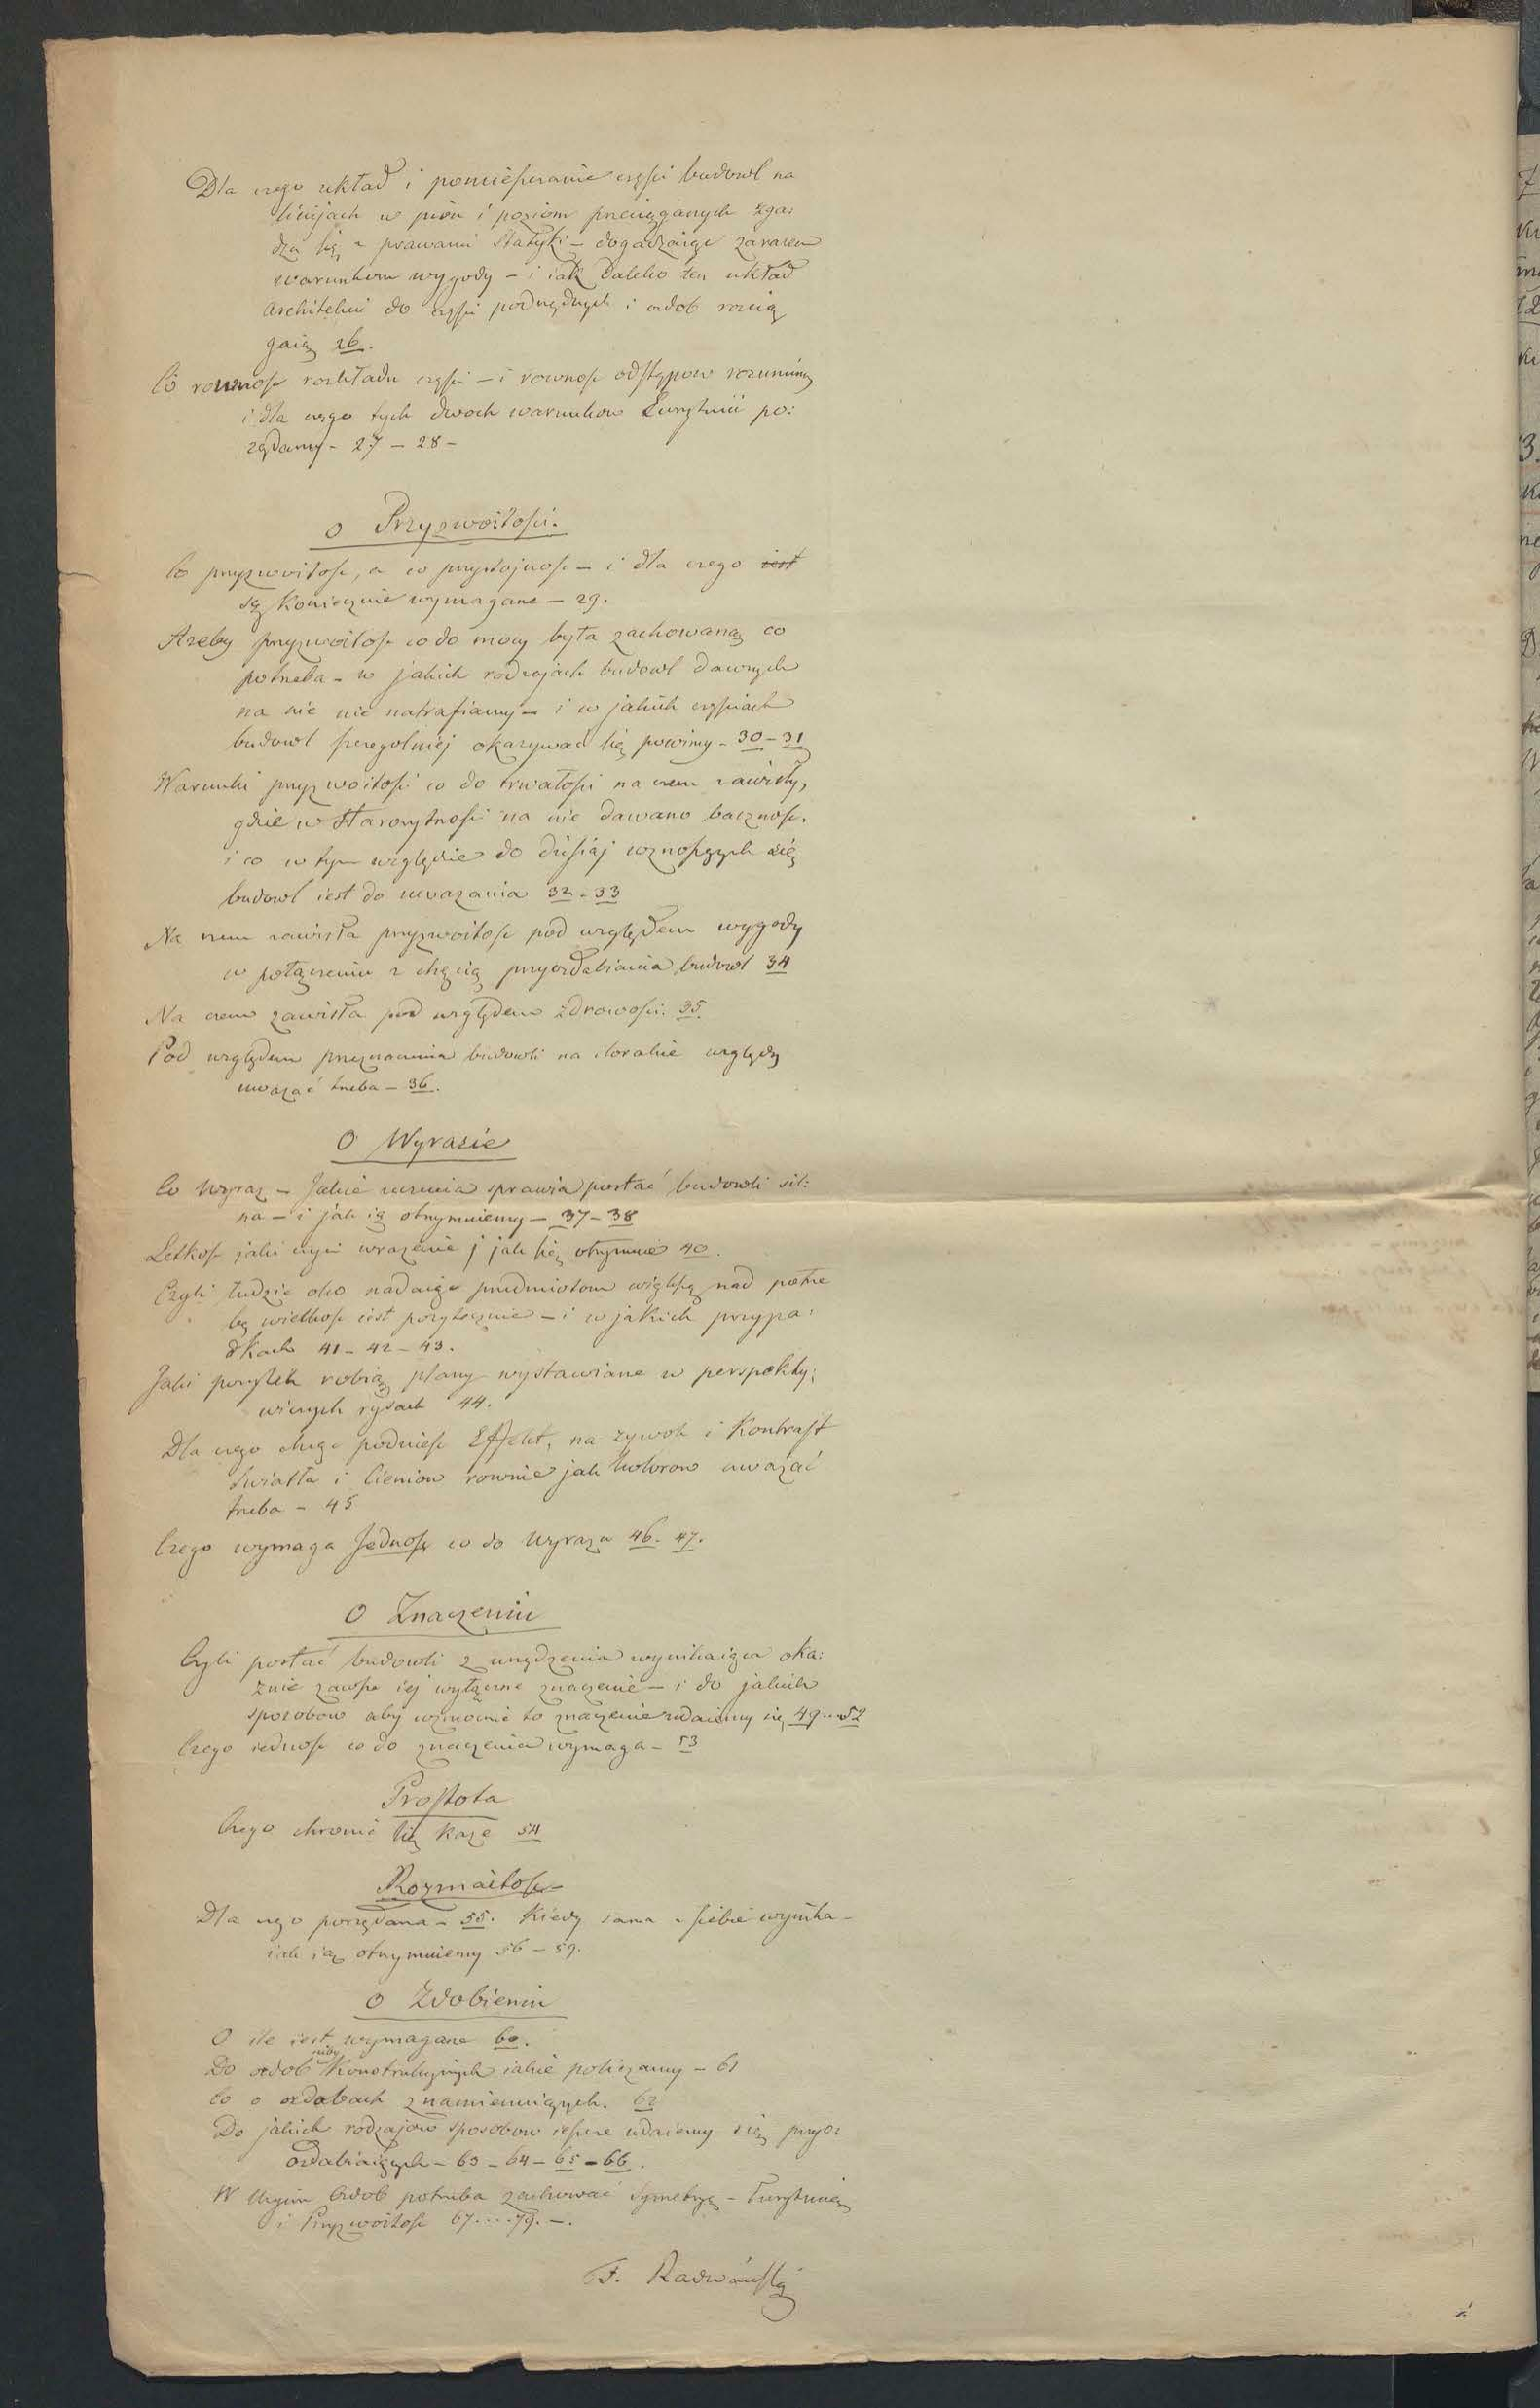 Dla czego układ i pomieszczanie części budowl na
linijach w pion i poziom przeciąganych zga:
dza się z prawami Statyki – dogadzaiąc zarazem
warunkom wygody – i iak daleko ten układ
Architekci do części podrzędnych i ozdob rozcią
gaią 26.
Co rownosc rozkładu części – i rownosc odstępow rozumimy
i dla czego tych dwoch warunkow Eurytmii po:
ządamy – 27 – 28 –
o Przyzwoitości.
Co przyzwoitosc, a co przystojnosc – i dla czego iest
są koniecznie wymagane – 29.
Azeby przyzwoitosc co do mocy była zachowaną co
potrzeba – w jakich rodzajach budowl dawnych
na nie nie natrafiamy – i w jakich częściach
budowl szczegolniej okazywać się powinny – 30 – 31
Warunki przyzwoitości co do trwałości na czem zawisły,
gdzie w starozytności na nie dawano bacznosc.
i co w tym względzie do dzisiaj wznoszących się
budowl iest do uwazania 32 – 33
Na czem zawisła przyzwoitosc pod względem wygody
w połączeniu z chęcią przyozdabiania budowl 34
Na czem zawisła pod względem zdrowości. 35.
Pod względem przeznaczenia budowli na ilorakie względy
uwazać trzeba – 36.
O Wyrazie
Co Wyraz – Jakie uczucia sprawia postać budowli sil:
na – i jak ią otrzymuiemy – 37 – 38
Lekkosc jaki czyni wrazenie j jak się otrzymuie 40.
Czyli łudzić oko nadaiąc przedmiotom większą nad potrze
bę wielkosc iest pozytecznie – i w jakich przypa:
dkach 41 – 42 – 43.
Jaki pozytek robią plany wystawiane w perspekty:
wicznych rysach 44.
Dla czego chcąc podniesc Effekt, na zywosc i Kontrast
Swiatła i Cieniow rownie jak kolorow uwazać
trzeba – 45
Czego wymaga Jednosc co do Wyrazu 46. 47.
O Znaczeniu
Czyli postać budowli z urządzenia wynikaiąca oka:
zuie zawsze iej wyłączne znaczenie – i do jakich
sposobow aby wzmocnić to znaczenie udaiemy się 49...52
Czego iednosc co do znaczenia wymaga – 53
Prostota
Czego chronić się kaze 54
Rozmaitosc –
Dla czego porządana – 55. Kiedy sama z siebie wynika –
iak ią otrzymuiemy 56 – 59.
O Zdobieniu
O ile iest wymagane 60.
Do ozdob niby Konstrukcyinych iakie policzamy – 61
Co o ozdobach znamieniuiących. 62
Do jakich rodzajow sposobow ieszcze udaiemy się przyo:
ozdabiaiących – 63 – 64 – 65 – 66.
W Uzyciu Ozdob potrzeba zachować Symetryę – Eurytmią
i Przyzwoitosc 67....79. –.
F. Radwański